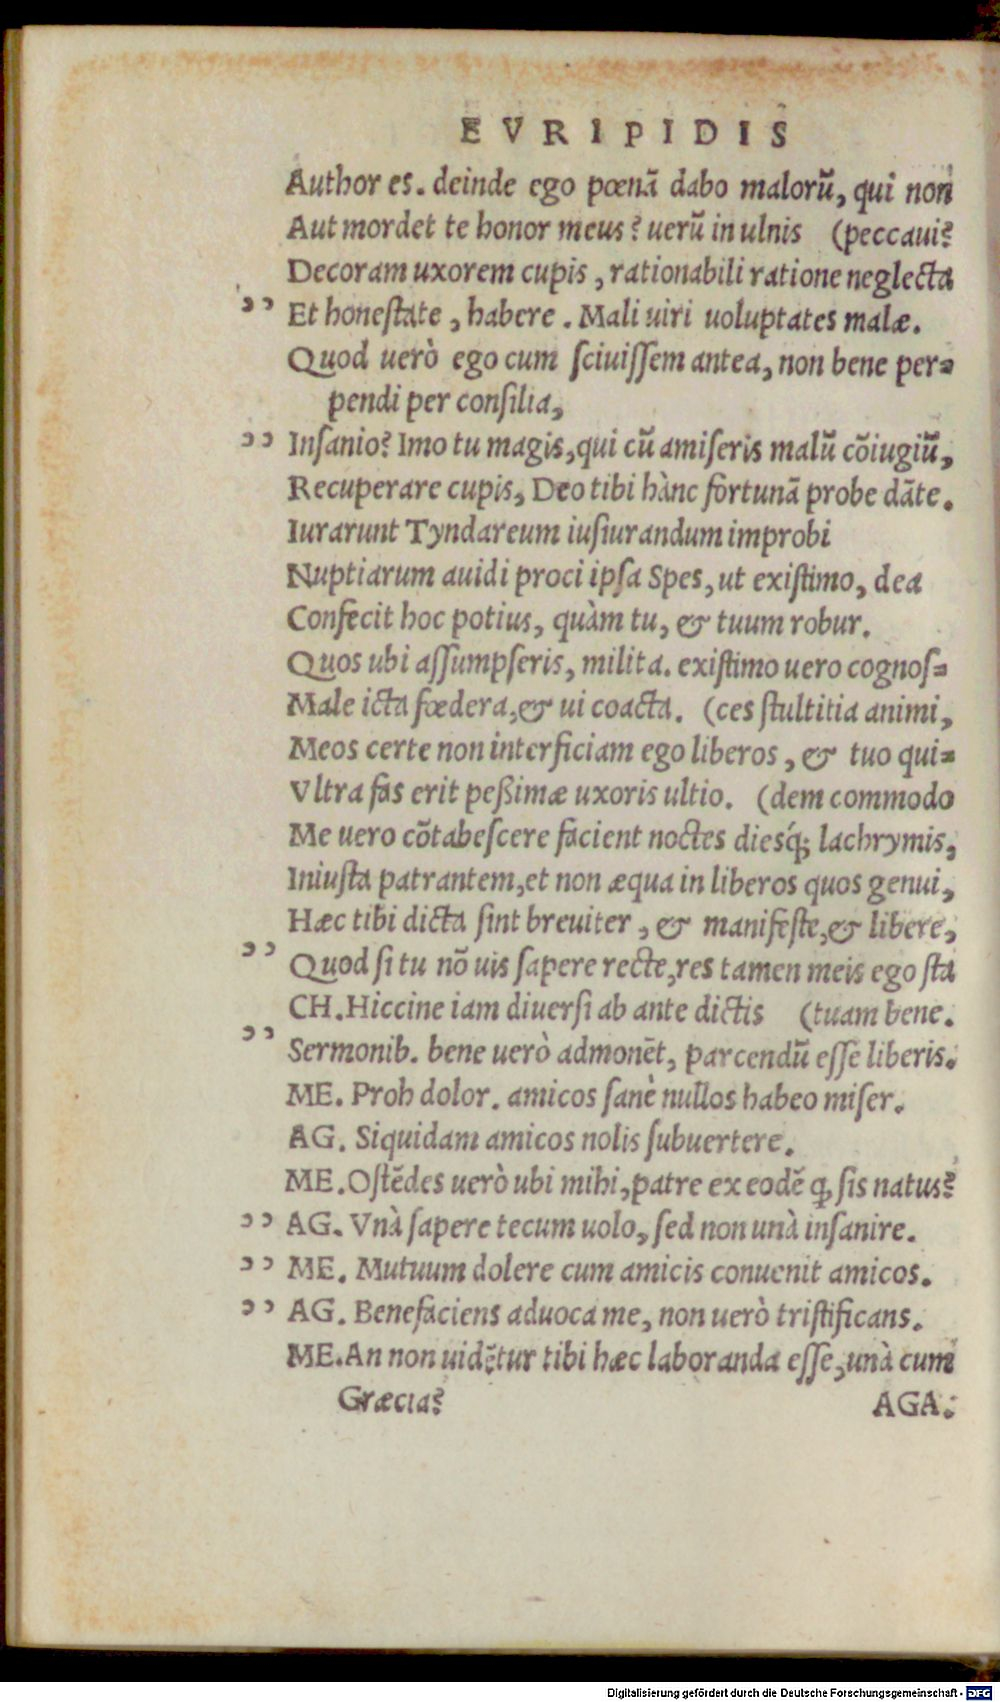 EVRIPIDIS
Author es. deinde ego pœnā dabo malorū, qui non
Aut mordet te honor meus? uerū in ulnis (peccaui?
Decoram uxorem cupis, rationabili ratione neglecta
,, Et honeſtate, habere. Mali uiri uoluptates malæ.
Quod uerò ego cum ſciuiſſem antea, non bene per=
pendi per conſilia,
,, Inſanio? Imo tu magis, qui cū amiſeris malū cōiugiū,
Recuperare cupis, Deo tibi hànc fortunā probe dāte.
Iurarunt Tyndareum iuſiurandum improbi
Nuptiarum auidi proci ipſa Spes, ut exiſtimo, dea
Confecit hoc potius, quàm tu, & tuum robur.
Quos ubi aſſumpſeris, milita. exiſtimo uero cognoſ=
Male icta fœdera, & ui coacta. (ces ſtultitia animi,
Meos certe non interficiam ego liberos, & tuo qui=
Vltra fas erit peßimæ uxoris ultio. (dem commodo
Me uero cōtabeſcere facient noctes dieſq́; lachrymis,
Iniuſta patrantem, et non æqua in liberos quos genui,
Hæc tibi dicta ſint breuiter, & manifeſte, & libere,
,, Quod ſi tu nō uis ſapere recte, res tamen meis ego ſta
CH. Hiccine iam diuerſi ab ante dictis (tuam bene.
,, Sermonib. bene uerò admonēt, parcendū eſſe liberis.
ME. Proh dolor. amicos ſanè nullos habeo miſer.
AG. Siquidam amicos nolis ſubuertere.
ME. Oſtēdes uerò ubi mihi, patre ex eodē ꝙ ſis natus?
,, AG. Vnà ſapere tecum uolo, ſed non unà inſanire.
,, ME. Mutuum dolere cum amicis conuenit amicos.
,, AG. Benefaciens aduoca me, non uerò triſtificans.
ME. An non uidētur tibi hæc laboranda eſſe, unà cum
Græcia? AGA.
Digitalisierung gefördert durch die Deutsche Forschungsgemeinschaft - DFG